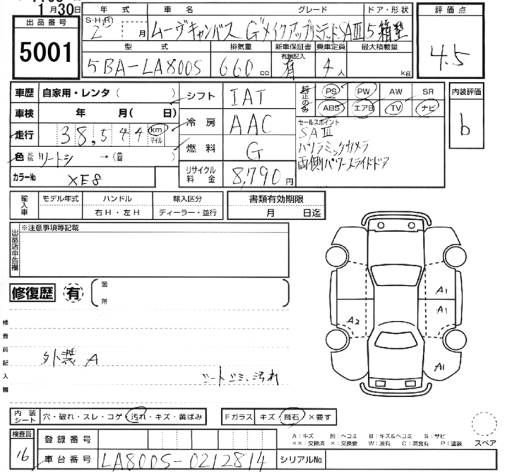 1月30日
出品番号
5001
年式 車名 グレード ドア・形状
S・H・R 2年 月 ムーヴキャンバス Gメイクアップリミテッド SAⅢ 5
型式 排気量 新車保証書 乗車定員 最大積載量
5BA-LA800S 660cc 有 4人 kg
評価点
4.5
車歴 自家用・レンタ
車検 年 月
走行 38,544 km マイル
色 ツートン
カラーNo. XE8
シフト IAT
冷房 AAC
燃料 G
リサイクル料金 8,790円
PS PW AW SR
ABS エアB TV ナビ
セールスポイント
SAⅢ
パノラミックカメラ
両側パワースライドドア
内装評価
b
輸入車 モデル年式 ハンドル 輸入区分
右H・左H ディーラー・並行
書類有効期限
月 日迄
※注意事項等記載
修復歴 有 箇所
検査員記入欄
外装 A
シートシミ、汚れ
A1
A1
A2
A1
内装シート 穴・破れ・スレ・コゲ 汚れ・キズ・黄ばみ
Fガラス キズ・飛石・×要す
スペア
検査員
16
登録番号
車台番号 LA800S-0212814 シリアルNo.